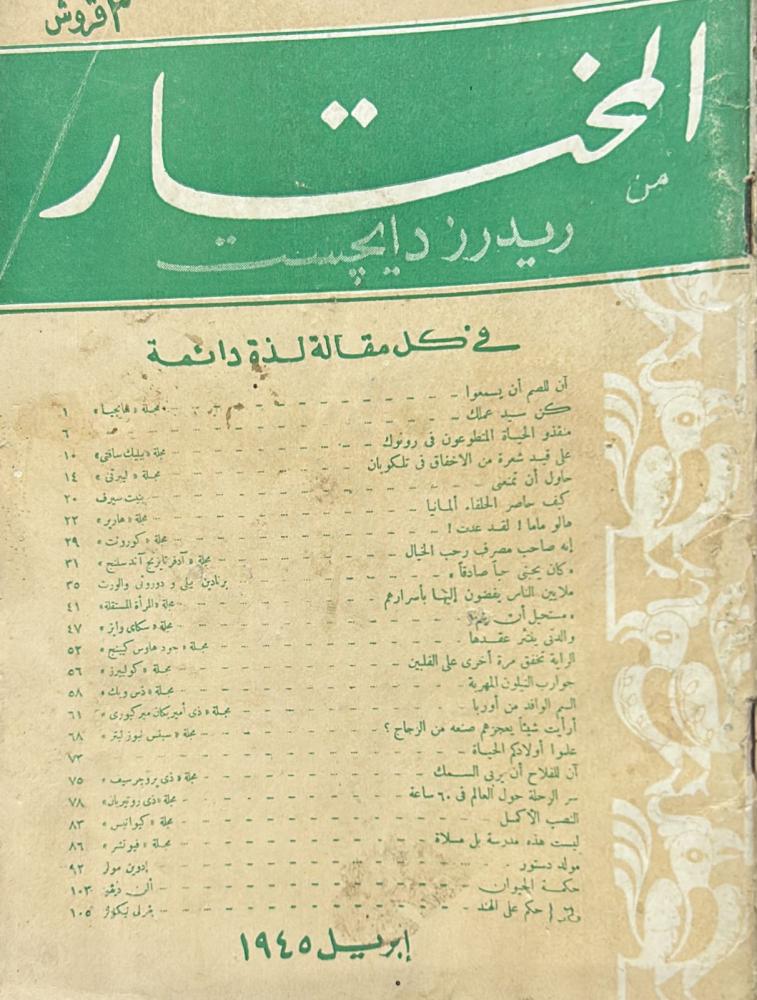 ٣ قروش
المختار
من
ريدرز دايجست
في كل مقالة لذة دائمة
آن للصم أن يسمعوا - مجلة «هايجيا» ١
كن سيد عملك - ٦
منقذو الحياة المتطوعون فى رونوك - مجلة «بابليك سافتى» ١٠
على قيد شعرة من الاخفاق فى تلكوبان - مجلة «ليبرتى» ١٤
حاول أن تمشى - بنيت سيرف ٢٠
كيف حاصر الحلفاء ألمانيا - مجلة «هاربر» ٢٢
هالو ماما ! لقد عدت ! - مجلة «كورونت» ٢٩
إنه صاحب مصرف رحب الخيال - مجلة «آدفرتايزنج آند سلنج» ٣١
«كان يحبنى حباً صادقاً» - برنادين بيلى و دوروثى والورث ٣٥
ملايين الناس يفضون إليها بأسرارهم - مجلة «المرأة المستقلة» ٤١
«مستحيل أن - مجلة «سكاى وايز» ٤٧
والدتى يفتر عقدها - مجلة «جود هاوس كيبنج» ٥٢
الراية تخفق مرة أخرى على الفلبين - مجلة «كوليرز» ٥٦
جوارب النيلون المهربة - مجلة «ذس ويك» ٥٨
السم الوافد من أوربا - مجلة «ذى أميريكان ميركيورى» ٦١
أرأيت شيئاً يعجزهم صنعه من الزجاج ؟ - مجلة «سينس نيوز ليتر» ٦٨
علموا أولادكم الحياة - ٧٣
آن للفلاح أن يربى السمك - مجلة «ذى بروجرسيف» ٧٥
سر الرحلة حول العالم فى ٦٠ ساعة - مجلة «ذى روتيريان» ٧٨
النصب الأكمل - مجلة «كيوانيس» ٨٣
ليست هذه مدرسة بل مسلاة - مجلة «فيوتشر» ٨٦
مولد دستور - إدوين مولر ٩٢
حكمة الحيوان - ألن ديفو ١٠٣
حكم على الهند - بفرلى نيكولز ١٠٥
إبريل ١٩٤٥